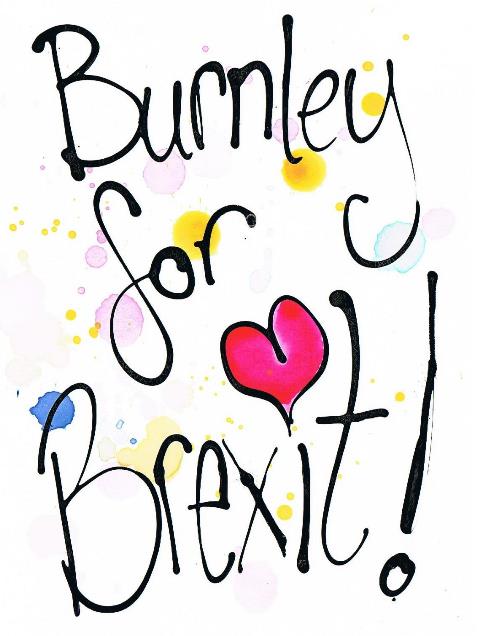 Burnley
for
Brexit!